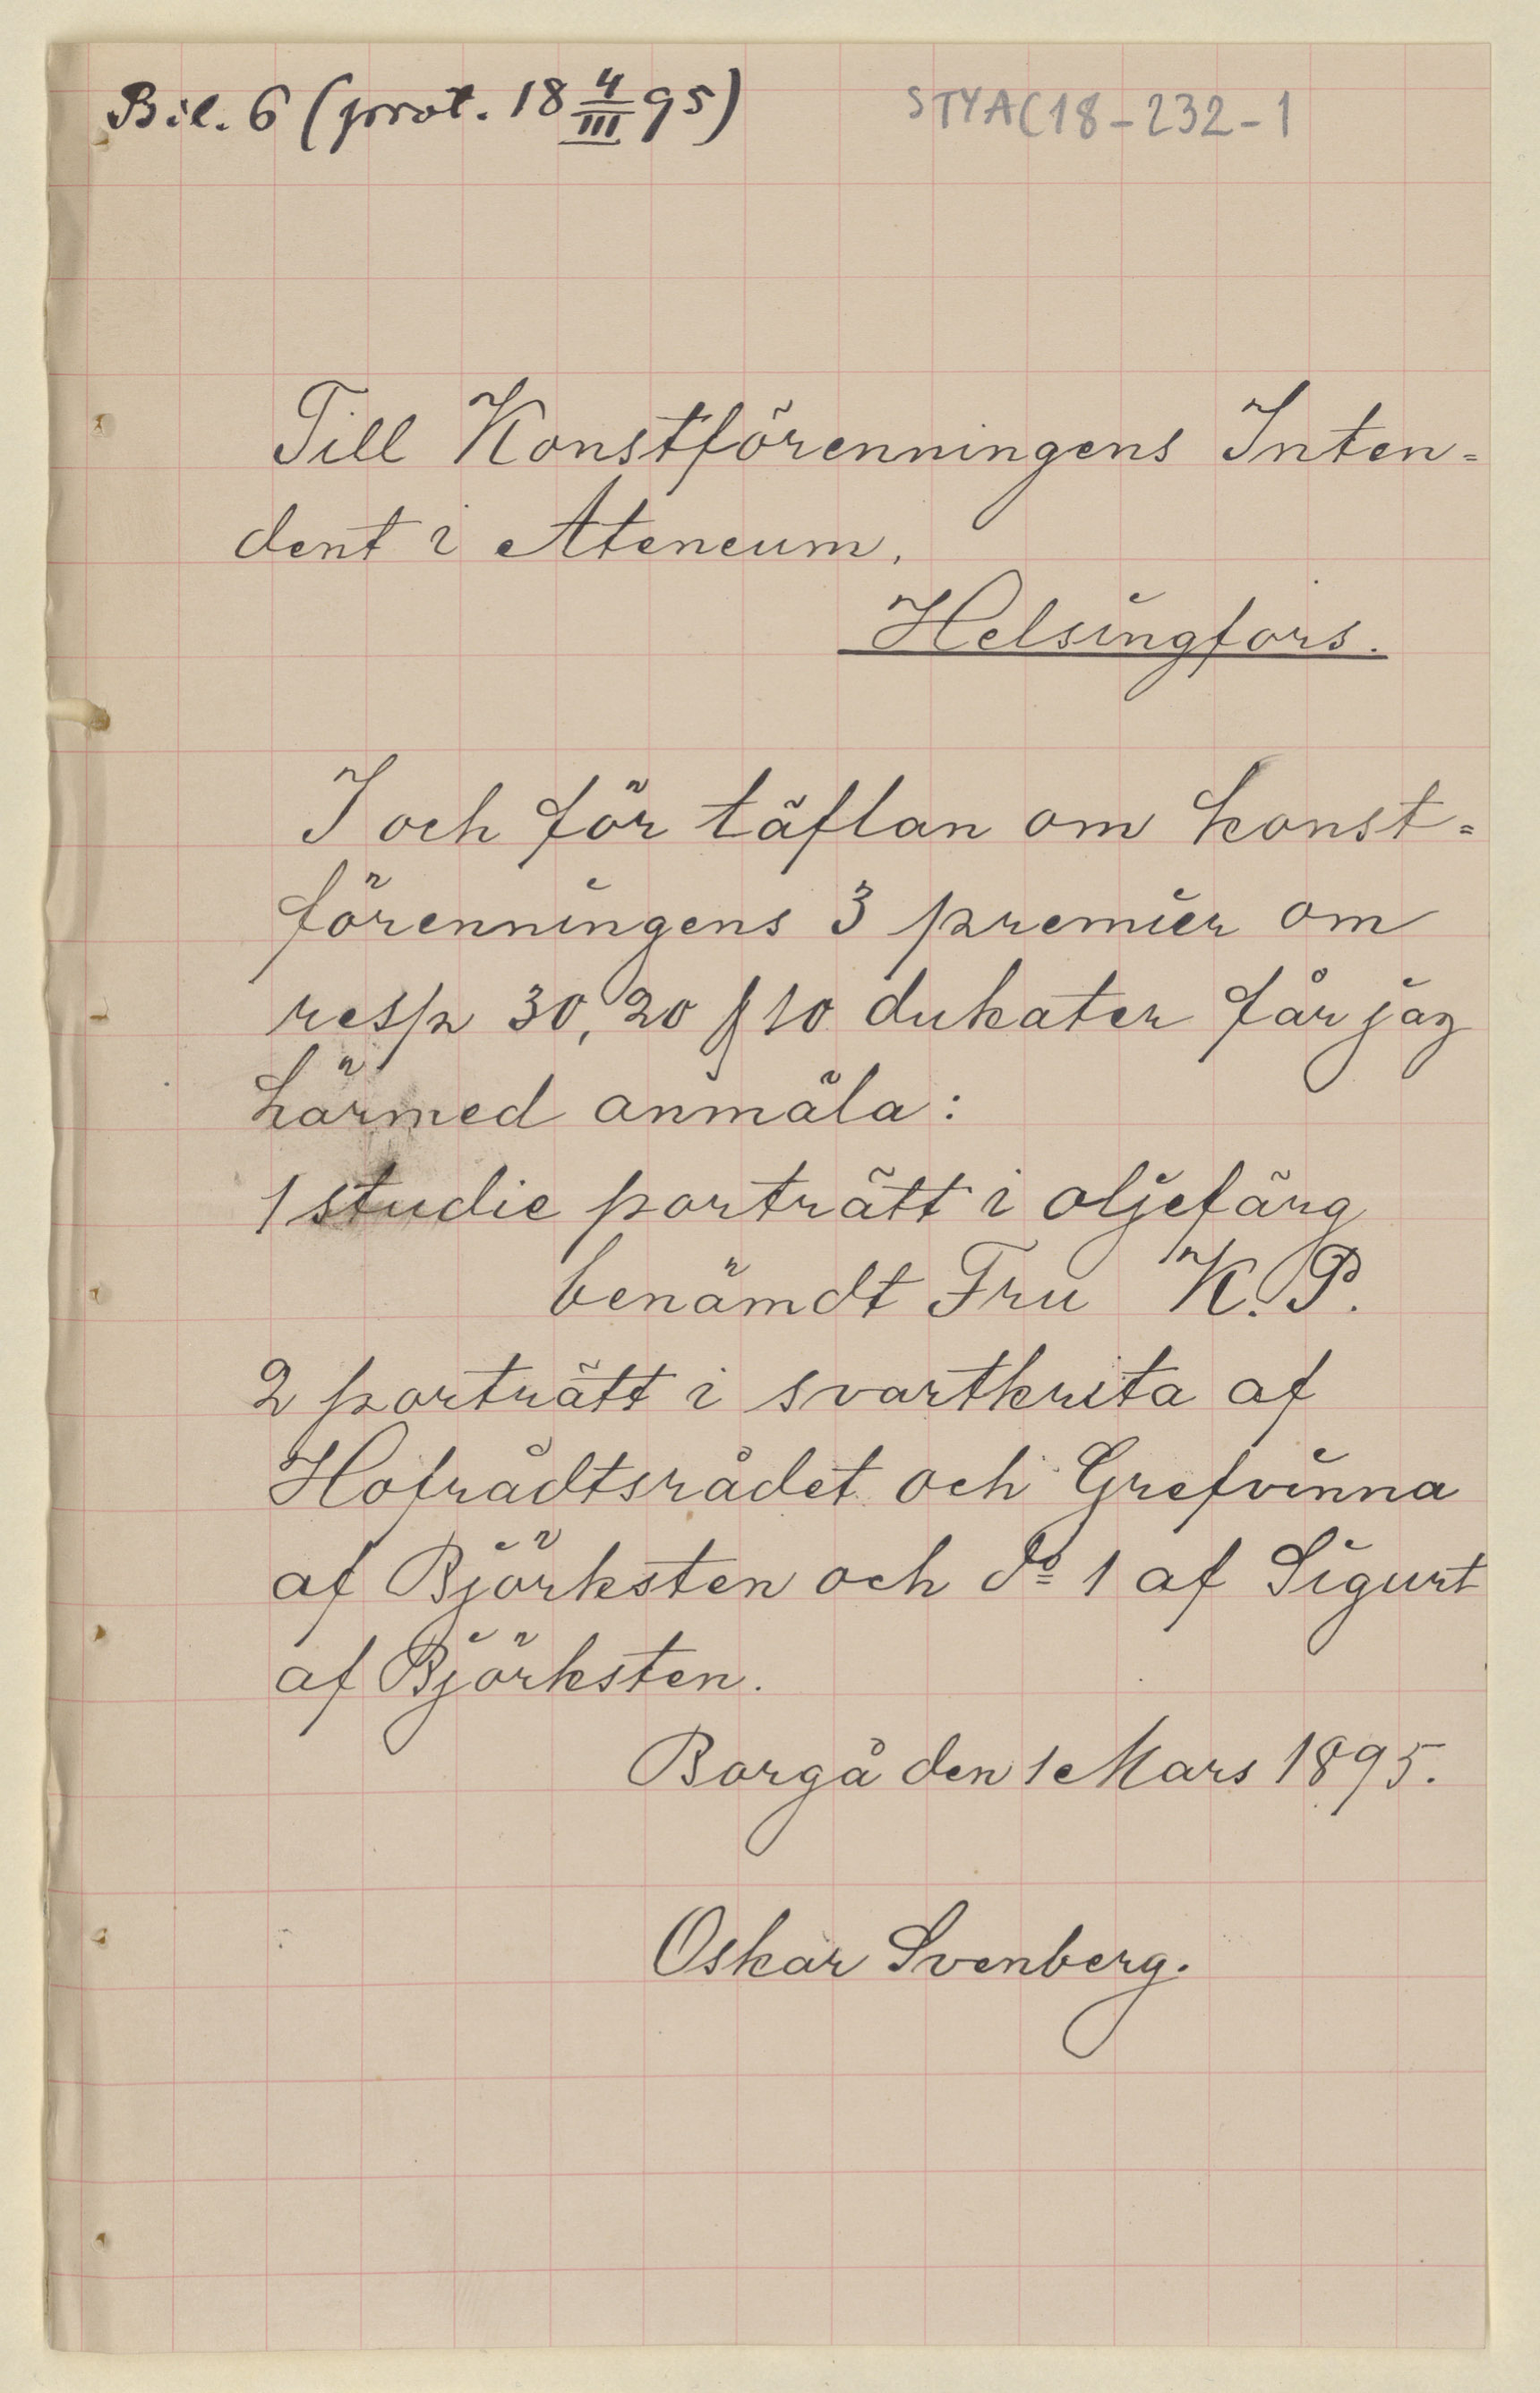 Bil. 6 (prot. 18 4/III 95)
STYAC18-232-1
Till Konstförenningens Inten=
dent i Ateneum.
Helsingfors.
I och för täflan om konst=
förenningens 3 premier om
resp 30, 20 & 10 dukater får jag
härmed anmäla:
1 studie porträtt i oljefärg
benämdt Fru K. P.
2 porträtt i svartkrita af
Hofrådtsrådet och Grefvinna
af Björksten och do 1 af Sigurt
af Björksten.
Borgå den 1 Mars 1895.
Oskar Svenberg.